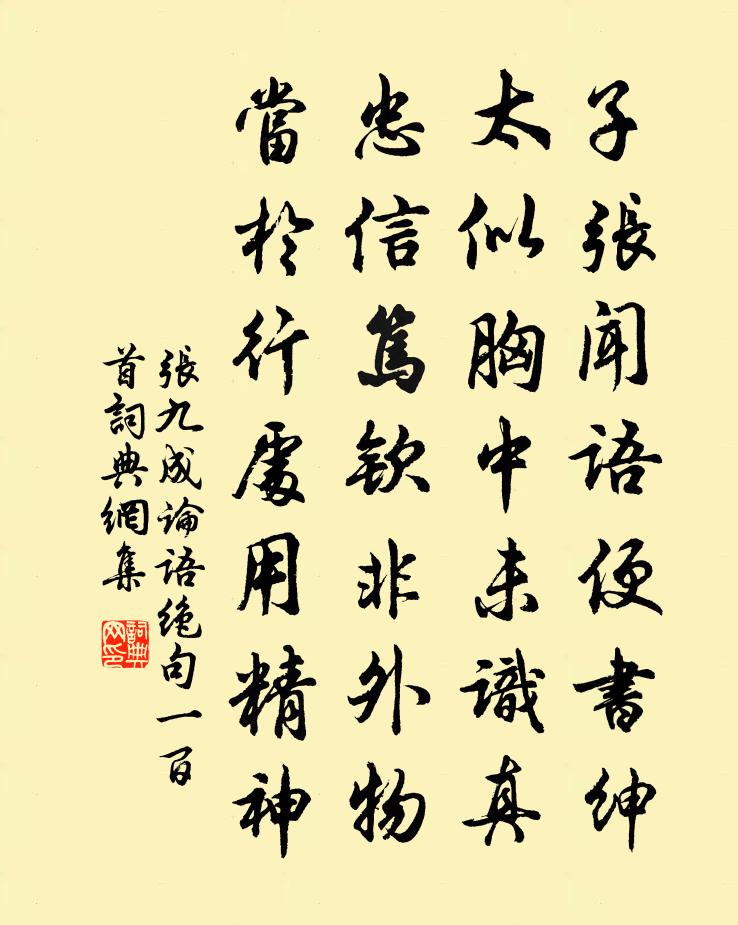 子張闻语便書绅
太似胸中未識真
忠信篤欽非外物
當於行處用精神
張九成论语绝句一百
首詞典網集
詞典網印